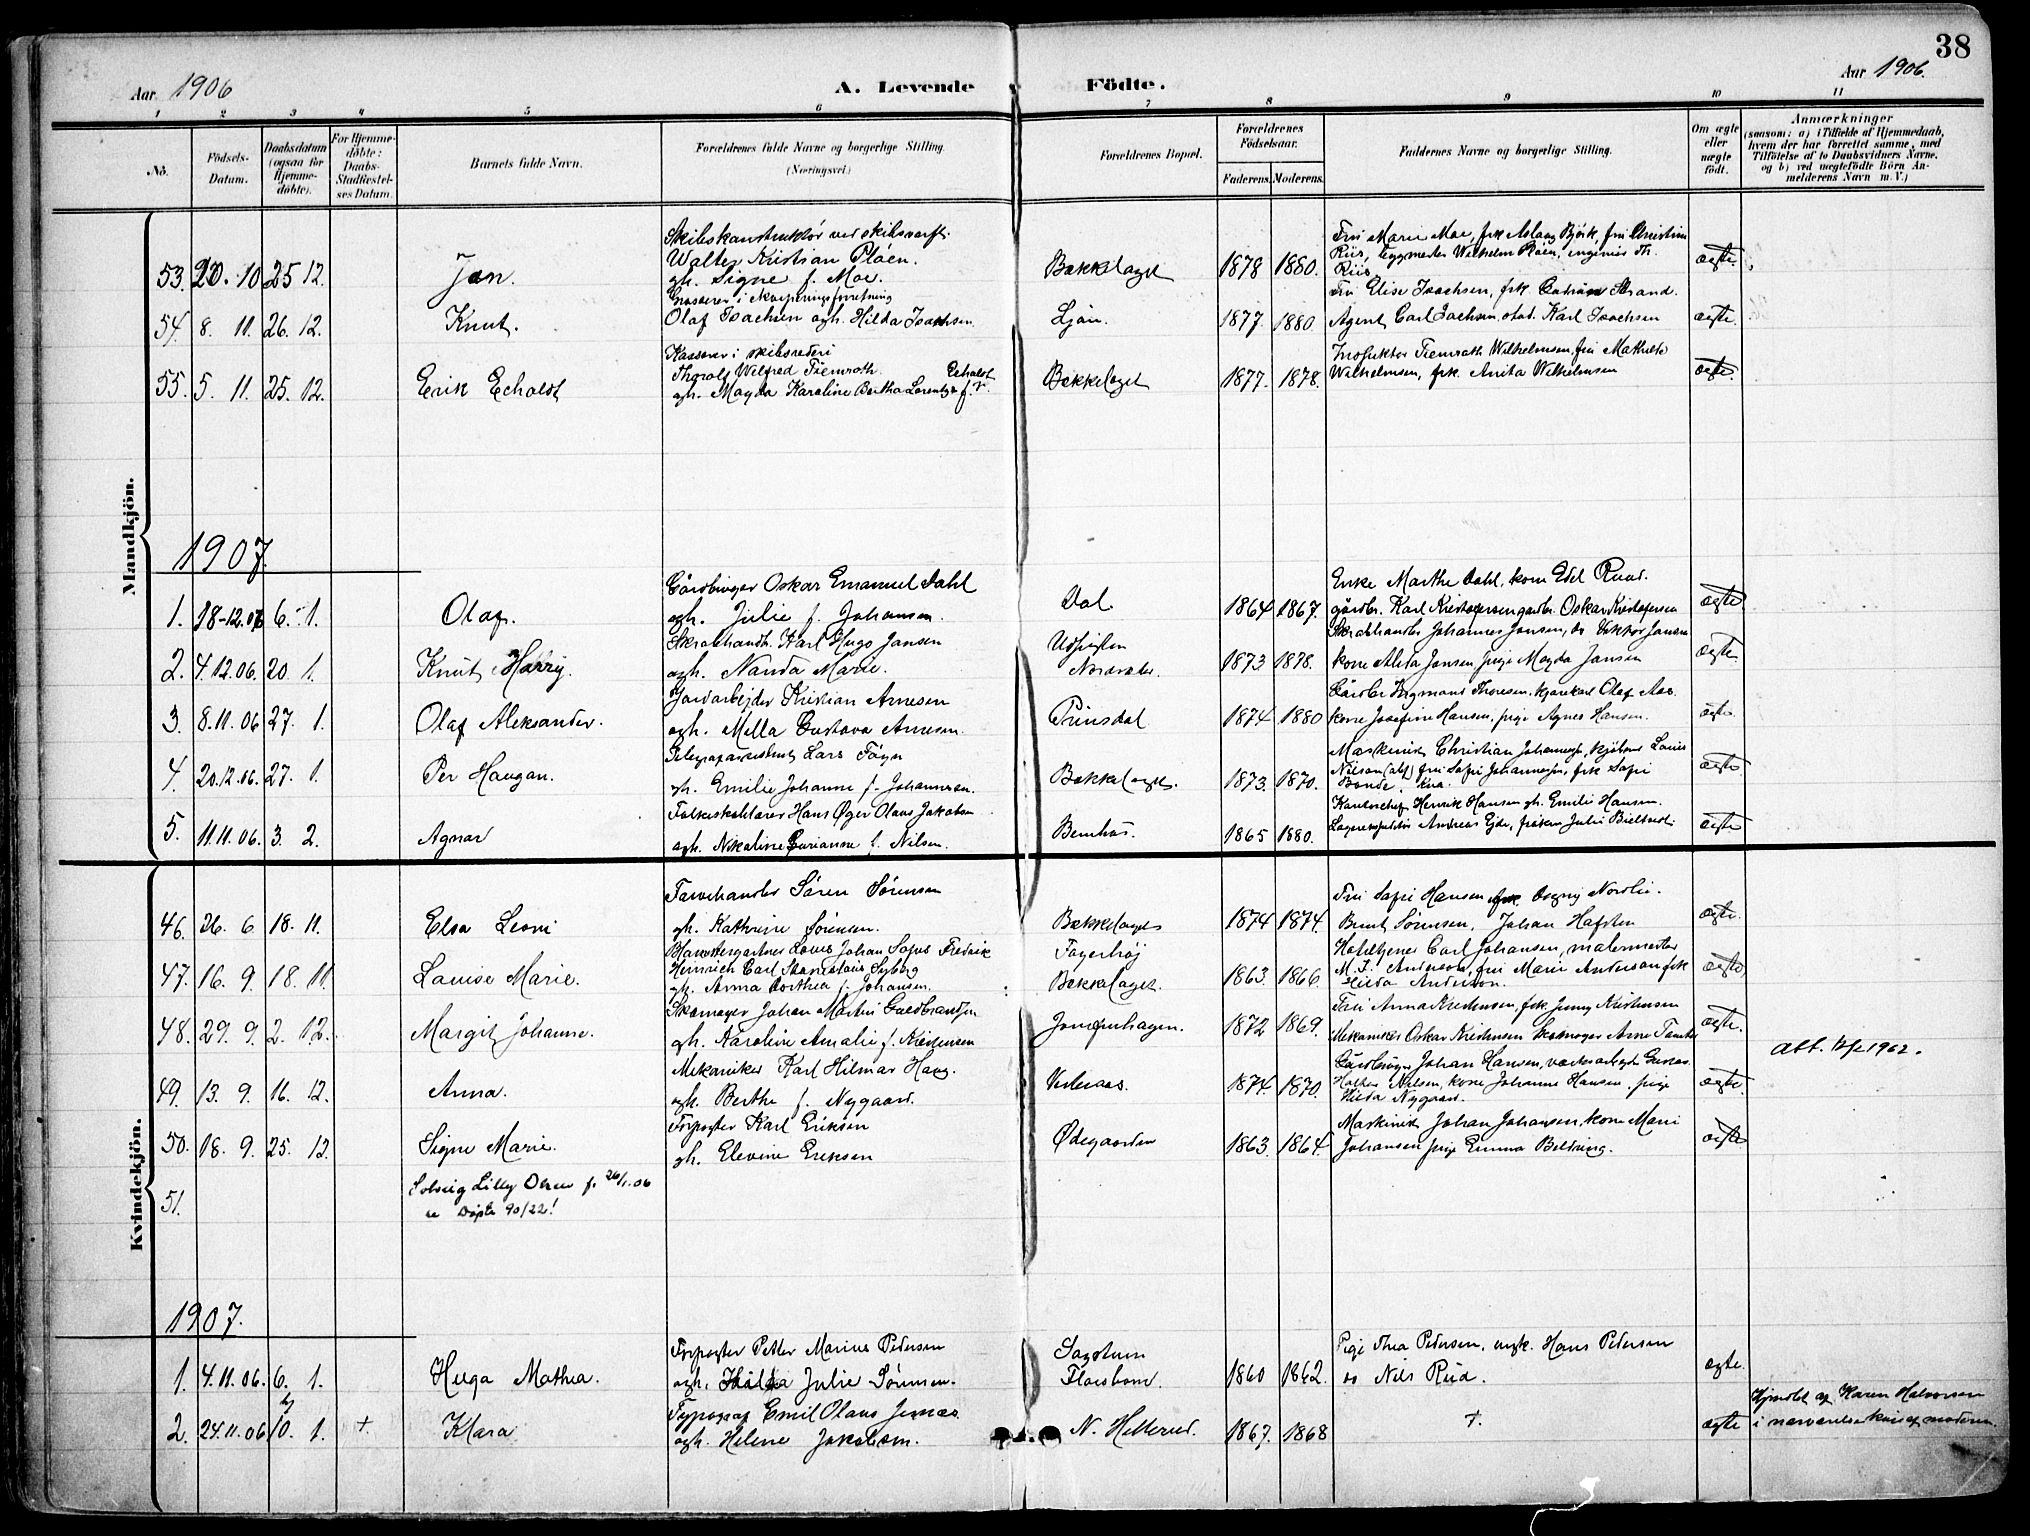 38
Aar 1906
A. Levende Födte.
Aar 1906.
1 2 3 4 5 6 7 8 9 10 11
No.
Födsels-Datum.
Daabsdatum (ogsaa for Hjemmedöbte).
For Hjemmedöbte: Daabs-Stadfæstelses Datum.
Barnets fulde Navn.
Forældrenes fulde Navne og borgerlige Stilling. (Næringsvei.)
Forældrenes Bopæl.
Forældrenes Födselsaar.
Faderens. Moderens.
Faddernes Navne og borgerlige Stilling.
Om ægte eller uægte födt.
Anmærkninger
(saasom: a) i Tilfælde af Hjemmedaab, hvem der har forrettet samme, med Tilföielse af to Daabsvidners Navne, og b) ved uægtefödte Börn Anmelderens Navn m. V.)
Mandkjön.
53. 20. 10 25 12. Jan. Skibskonstruktör ved skibsverft Walter Kristian Pløen. gh. Signe f. Moe. Bækkelaget 1878 1880. Fru Marie Moe, frk Aslaug Bjørk, fru Christine Riis, byggmester Wilhelm Pløen, ingeniør Th. Riis ægte.
54. 8. 11. 26. 12. Knut. Grosserer i Olaf Isachsen ogh. Hilda Isachsen Ljan. 1877. 1880. Fru Elise Isachsen, frk. Strand. Agent Carl Isachsen, stud. Karl Isachsen ægte.
55. 5. 11. 25. 12. Erik Echoldt Kasserer i skibsrederi Thorolf Wilfred Fiemrath. ogh. Magda Karoline Bertha Lorentze f. Echoldt Bækkelaget 1877. 1878. Inspektør Fiemrath Wilhelmsen, fru Mathilde Wilhelmsen, frk. Anita Wilhelmsen ægte.
1907.
1. 18-12.06 6. 1. Olaf. Gårdbruger Oskar Emanuel Dahl ogh. Julie f. Johansen. Dal. 1864 1867. Enke Marthe Dahl, kone Edel Ruud. gårdbr. Karl Kristofersen gardbr. Oskar Kristofersen ægte.
2. 4.12.06. 20 1. Knut Harry. Skrabhandl. Karl Hugo Jansen ogh. Nanda Marie. Udsigten Nordstr. 1873 1878. Skrabhandler Johannes Jansen, do Viktor Jansen kone Aleta Jansen, pige Magda Jansen ægte
3. 8.11.06 27. 1. Olaf Aleksander. Jordarbejder Kristian Arnesen ogh. Milla Gustava Arnesen. Prinsdal 1874 1880 Gårdbr Ingmans Thoresen, kjørekarl Olaf Aas. kone Josefine Hansen, pige Agnes Hansen. ægte.
4. 20.12.06. 27. 1. Per Haugan. Telegrafassistent Lars Föyn gh. Emilie Johanne f. Johannesen. Bækkelaget. 1873. 1870. Maskinist Christian Johannesen, kjöbm. Louis Nilson (alf) fru Sofie Johannesen, frk Sofie Bonde, ægte
5. 11.11.06. 3. 2. Agnar Folkeskolelærer Hans Øger Olaus Jakobsen ogh. Nikoline f. Nilsen. Bernhus. 1865 1880. Kontorchef Henrik Hansen gh. Emilie Hansen. Lagerexpeditør Andreas Ejde, frøken Julie ægte
Kvindekjön.
46. 26. 6 18. 11. Elsa Leoni Farvehandler Sören Sörensen gh. Kathrine Sörensen. Bækkelaget 1874 1874. Fru Sofie Hansen frk. Dagny Nordlie. Bernt Sörensen, Johan Hafsten ægte.
47. 16. 9. 18. 11. Louise Marie. Blomstergartner Louis Johan Sofus Fredrik Heinrich Carl Syberg gh. Anna Dorthea f. Johansen. Fagerhöj Bækkelaget. 1863. 1866. Hotelejer Carl Johansen, malermester M. J. Anderson, fru Marie Anderson frk Hilda Anderson. ægte
48. 29. 9. 2. 12. Margit Johanne. Skomager Johan Martin Guldbrandsen gh. Karoline Amalie f. Kristensen Jomfruhagen. 1872 1869. Fru Anna Kristensen, frk Jenny Kristensen Mekaniker Oskar Kristensen Skomager Arne ægte. Att. 1962.
49. 13. 9. 16. 12. Anna. Mekaniker Karl Hilmar Haug. ogh. Berthe f. Nygaard. Vesteraas. 1874. 1870. Gårdbruger Johan Hansen, Nilsen, kone Johanne Hansen. pige Hilda Nygaard. ægte
50. 18. 9. 25. 12. Signe Marie. Forpagter Karl Eriksen gh. Elevine Eriksen Ødegaarden 1863. 1864. Maskinist Johan Johansen, kone Marie Johansen pige Emma Beldring. ægte
51. Solveig Lilly Olsen f. 26/1.06 se Døpte 90/22!
1907.
1. 4.11.06. 6. 1. Helga Mathea. Forpagter Petter Marius Pedersen ogh. Hilda Julie Sörensen. Sagstuen Flaesbom. 1860 1862. Pige Thea Pedersen, ungk. Hans Pedersen do Nils Rud. ægte
2. 24.11.06 10. 1. +. Klara Typograf Emil Olaus Jenæs ogh. Helene Jakobsen. N. Hellerud. 1867. 1868 +. ægte Hjemdøbt af Karen Halvorsen i nærværelse kun af moderen.